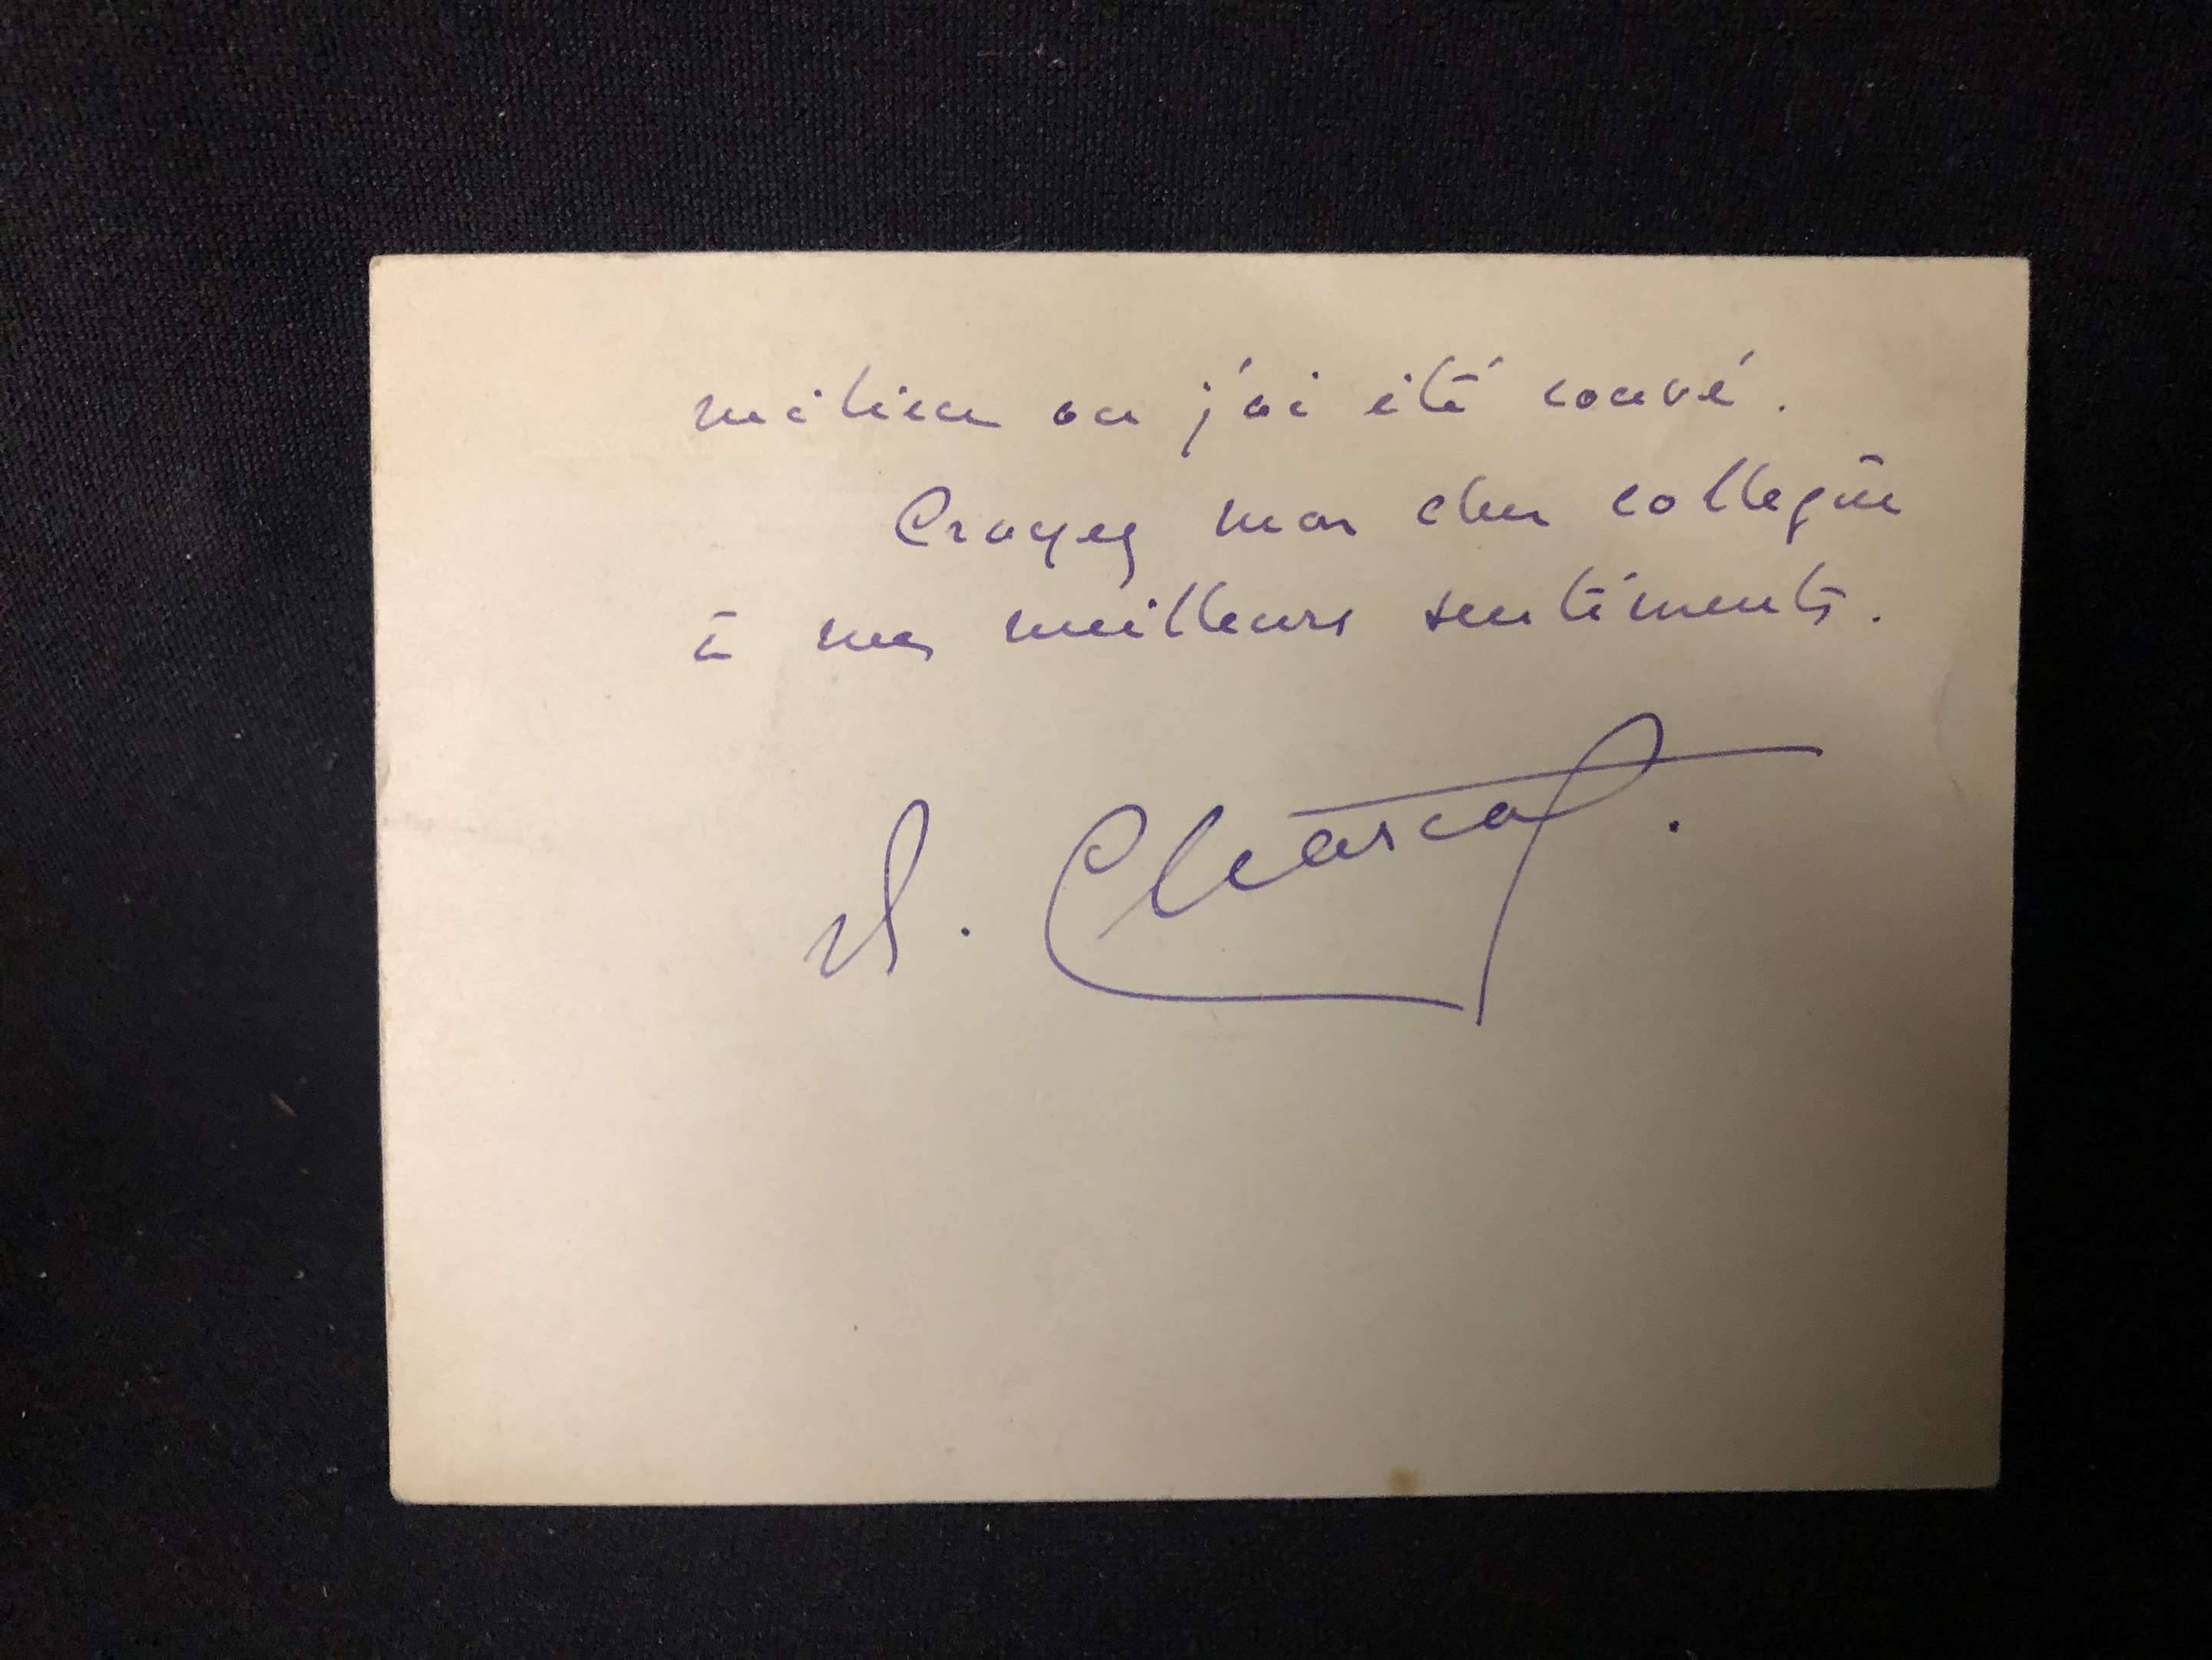 milieu ou j'ai été couvé.
Croyez mon cher collègue
à mes meilleurs sentiments.